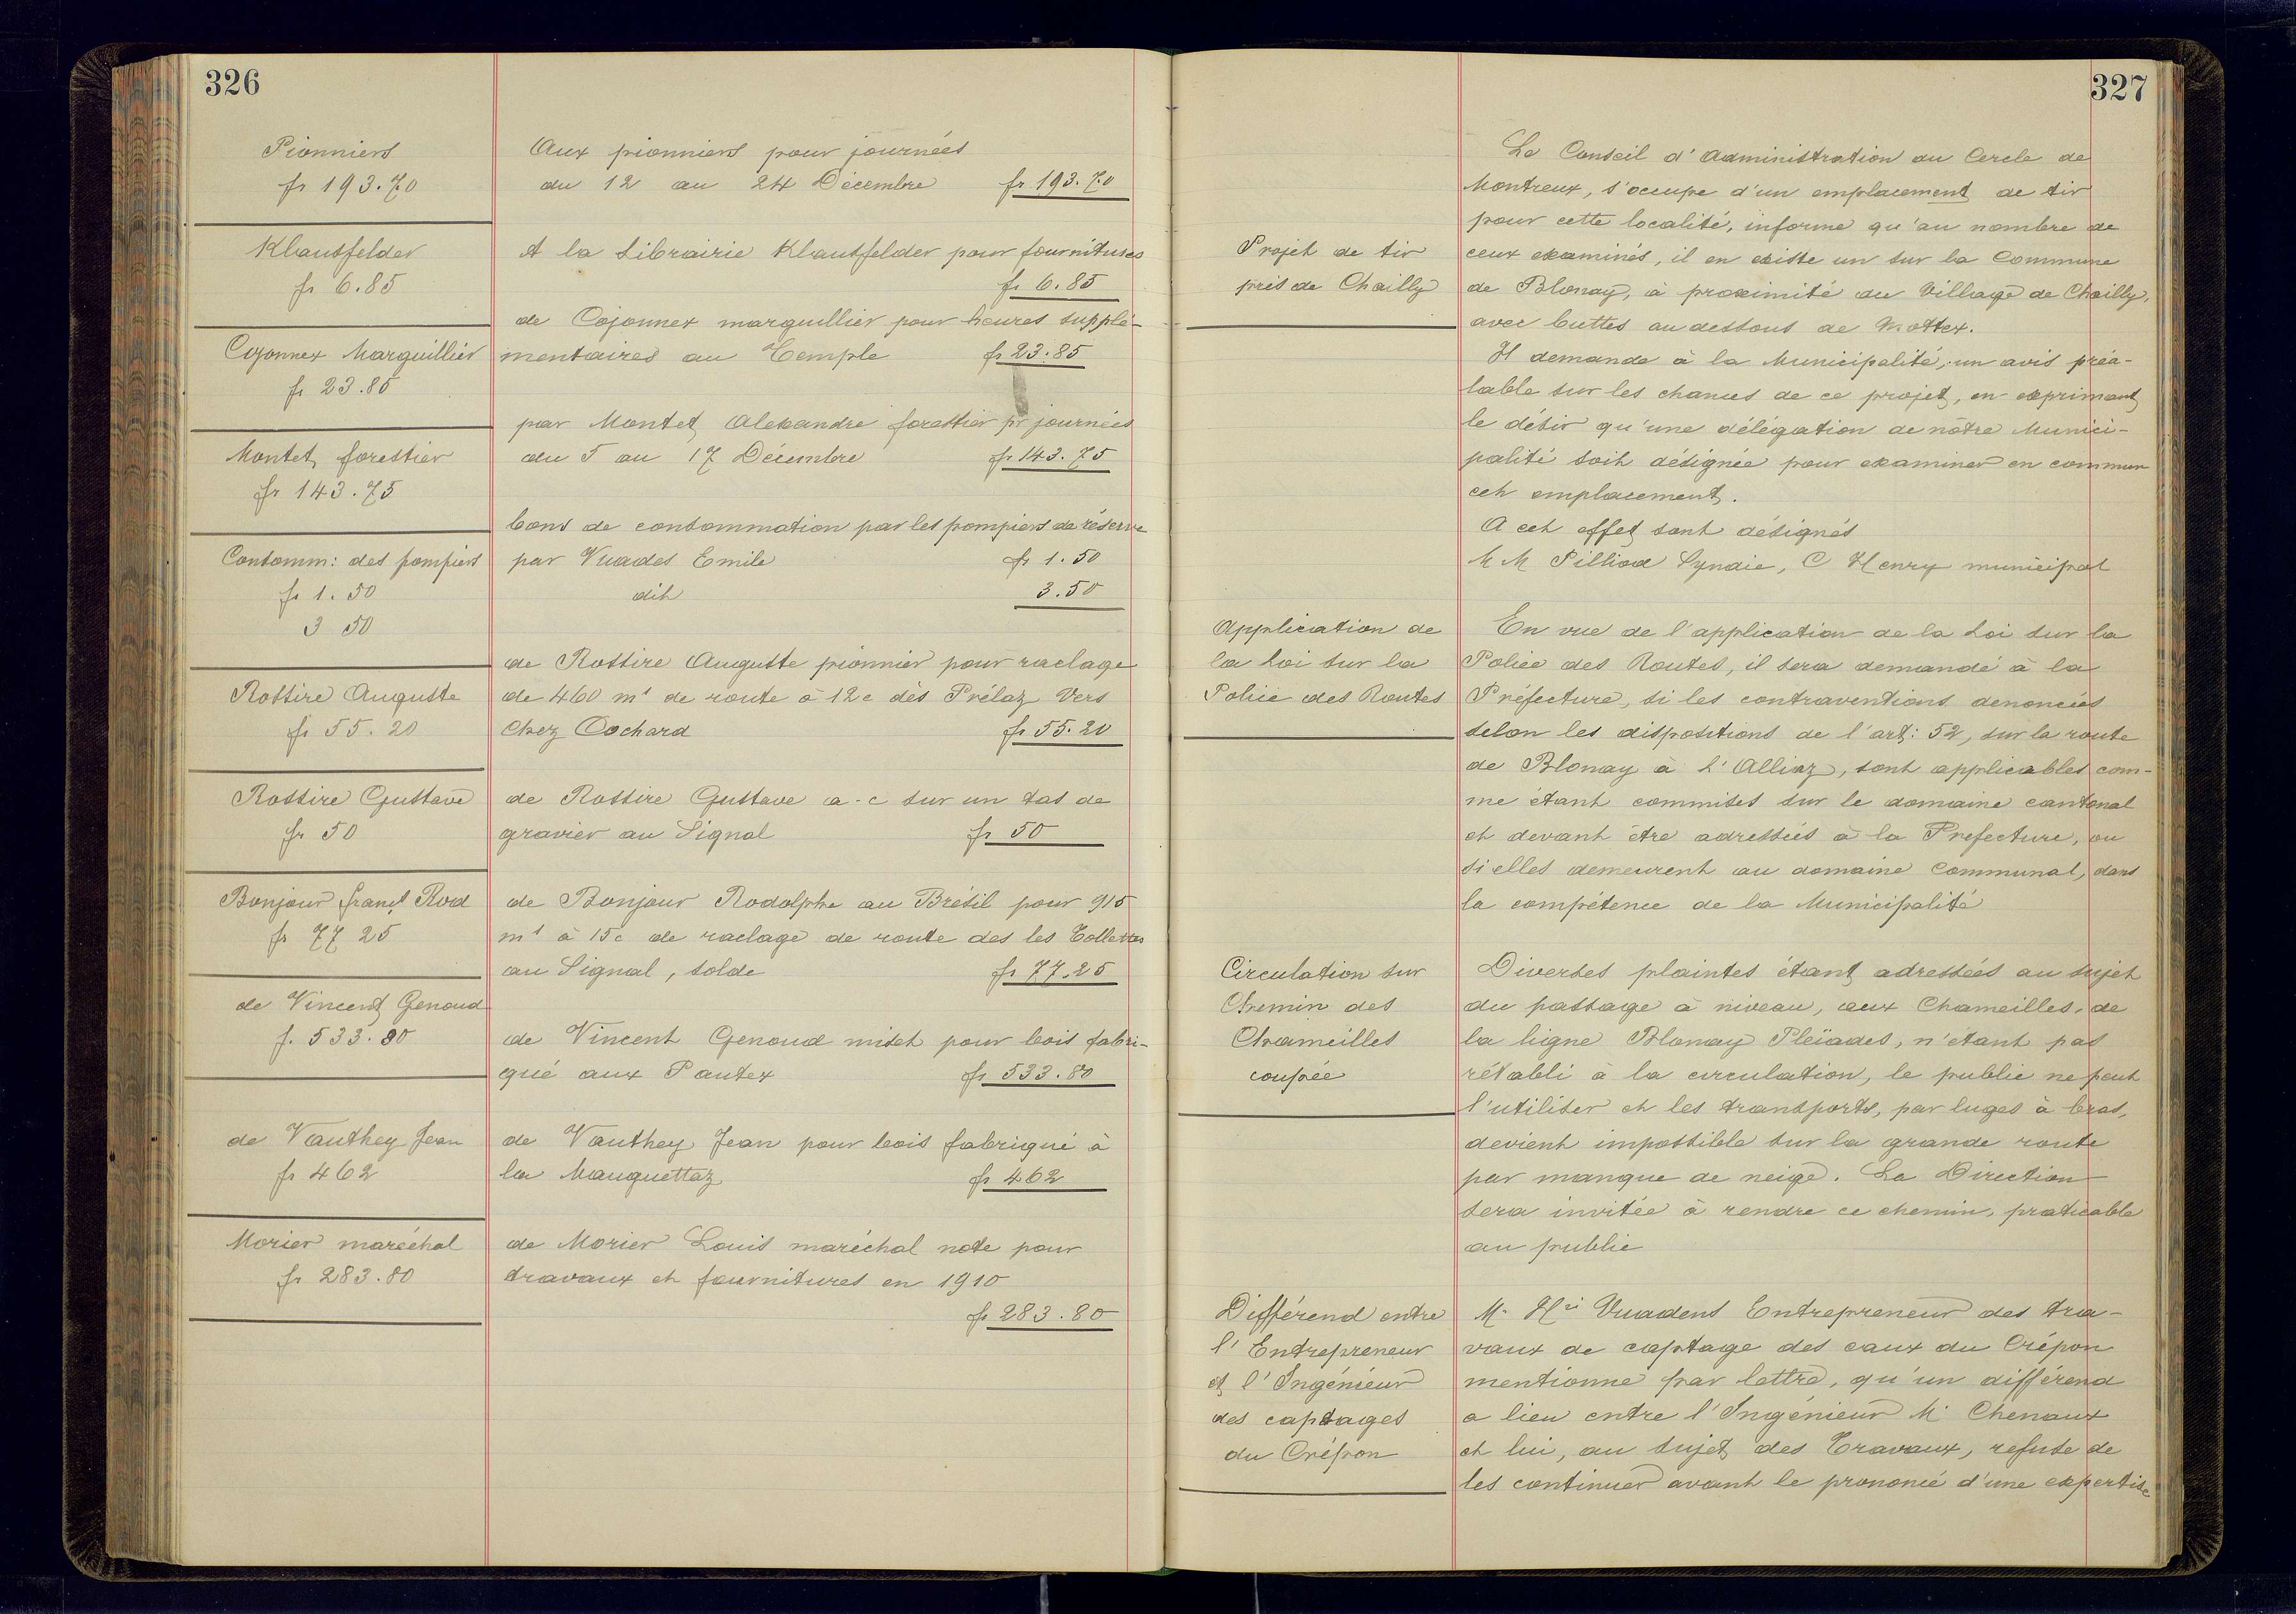 326
Pionniers
fr 193.70
Aux pionniers pour journées
du 12 au 24 Décembre fr 193.70
Klausfelder
fr 6.85
A la Librairie Klausfelder pour fournitures
fr 6.85
Cojonnex Marguillier
fr 23.85
de Cojonnex marguillier pour heures supplé-
mentaires au Temple fr 23.85
Montet forestier
fr 143.75
par Montet Alexandre forestier pr journées
du 5 au 17 Décembre fr 143.75
Consomm: des pompiers
fr 1.50
3 50
bons de consommation par les pompiers de réserve
par Vuades Emile fr 1.50
dit 3.50
Rossire Auguste
fr 55.20
de Rossire Auguste pionnier pour raclage
de 460 m¹ de route à 12c dès Prélaz vers
Chez Cochard fr 55.20
Rossire Gustave
fr 50
de Rossire Gustave a-c sur un tas de
gravier au Signal fr 50
Bonjour franç Rod
fr 77 25
de Bonjour Rodolphe au Brésil pour 915
m¹ à 15c de raclage de route des les Tollettes
au Signal, solde fr 77.25
de Vincent Genoud
f. 533.80
de Vincent Genoud miset pour bois fabri-
qué aux Pautex fr 533.80
de Vauthey Jean
fr 462
de Vauthey Jean pour bois fabriqué à
la Mauguettaz fr 462
Morier maréchal
fr 283.80
de Morier Louis maréchal note pour
travaux et fournitures en 1910
fr 283.80
327
Projet de tir
près de Chailly
Le Conseil d'Administration du Cercle de
Montreux, s'occupe d'un emplacement de tir
pour cette localité, informe qu'au nombre de
ceux examinés, il en existe un sur la Commune
de Blonay, à proximité du Village de Chailly,
avec buttes au dessous de Mottex.
Il demande à la Municipalité, un avis préa-
lable sur les chances de ce projet, en exprimant
le désir qu'une délégation de nôtre Munici-
palité soit désignée pour examiner en commun
cet emplacement.
A cet effet sont désignés
M M Pilliod Syndic, C Henry municipal
Application de
la Loi sur la
Police des Routes
En vue de l'application de la Loi sur la
Police des Routes, il sera demandé à la
Préfecture, si les contraventions denoncées
selon les dispositions de l'art: 52, sur la route
de Blonay à L'Alliaz, sont applicables com-
me étant commises sur le domaine cantonal
et devant être adressées à la Prefecture, ou
si elles demeurent au domaine Communal, dans
la compétence de la Municipalité
Circulation sur
Chemin des
Chameilles
coupée
Diverses plaintes étant adressées au sujet
du passage à niveau, aux Chameilles, de
la ligne Blonay Pleïades, n'étant pas
rétabli à la circulation, le public ne peut
l'utiliser et les transports, par luges à bras,
devient impossible sur la grande route
par manque de neige. La Direction
sera invitée à rendre ce chemin, praticable
au public
Différend entre
l'Entrepreneur
et l'Ingénieur
des captages
du Crépon
M. Hri Vuadens Entrepreneur des tra-
vaux de captage des eaux du Crépon
mentionne par lettre, qu'un différend
a lieu entre l'Ingénieur M. Chenaux
et lui, au sujet des Travaux, refuse de
les continuer avant le prononcé d'une expertise